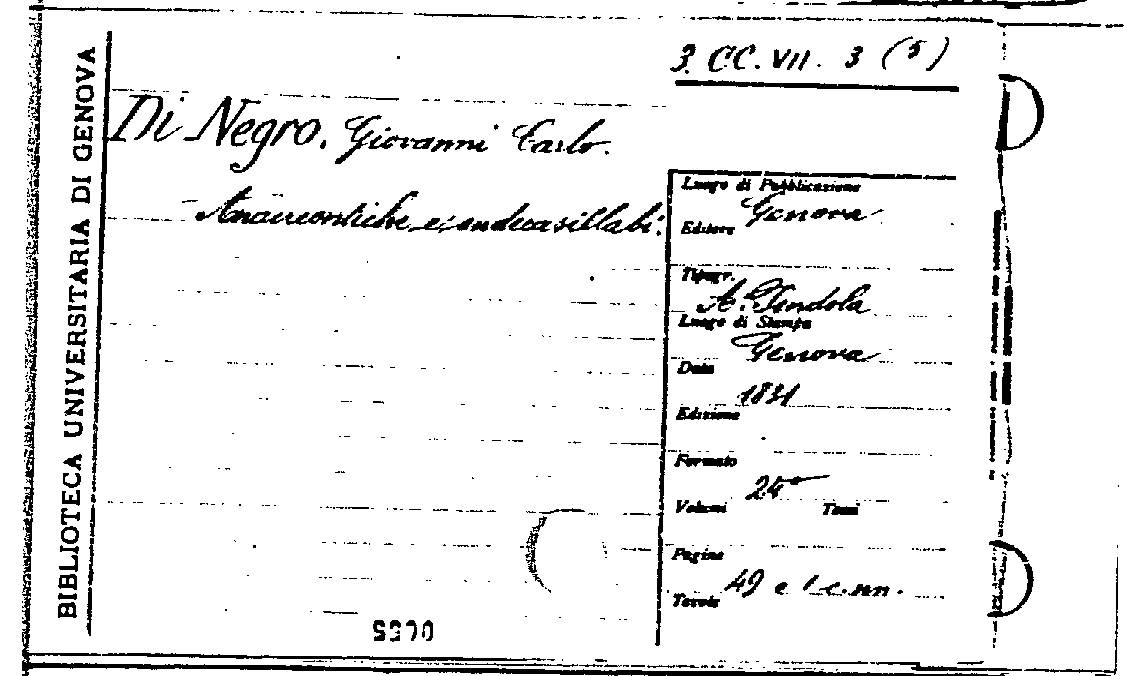 BIBLIOTECA UNIVERSITARIA DI GENOVA
3. CC. VII. 3 (5)
Di Negro, Giovanni Carlo.
Anacreontiche e endecasillabi.
Luogo di Pubblicazione
Genova
Editore
Tipogr.
A. Pendola
Luogo di Stampa
Genova
Data
1831
Edizione
Formato
24°
Volumi Tomi
Pagine
49 e 1 c. nn.
Tavole
0655